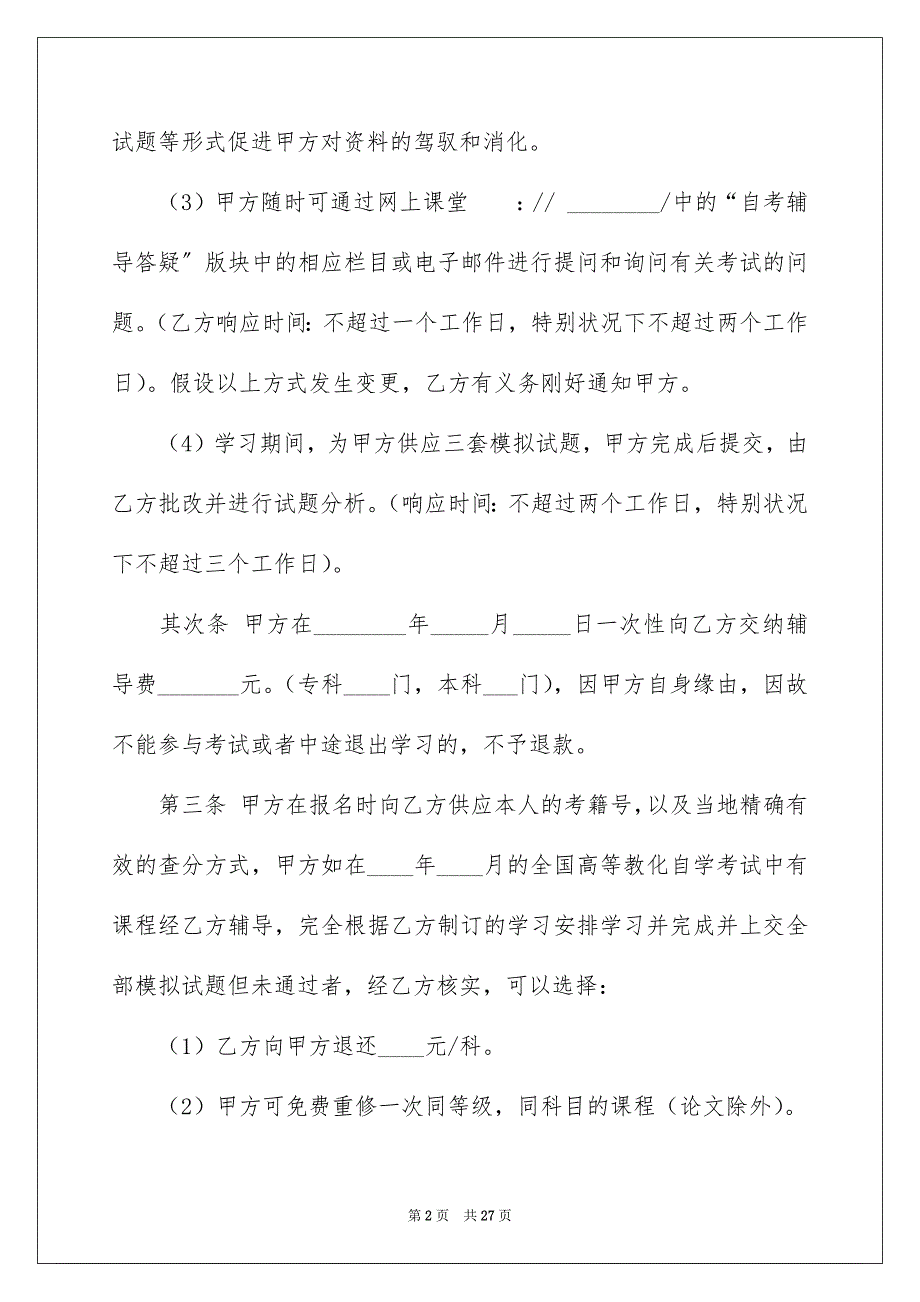 试题等形式促进甲方对资料的驾驭和消化。
（3）甲方随时可通过网上课堂　　：// ________/中的“自考辅
导答疑〞版块中的相应栏目或电子邮件进行提问和询问有关考试的问
题。（乙方响应时间：不超过一个工作日，特别状况下不超过两个工作
日）。假设以上方式发生变更，乙方有义务刚好通知甲方。
（4）学习期间，为甲方供应三套模拟试题，甲方完成后提交，由
乙方批改并进行试题分析。（响应时间：不超过两个工作日，特别状况
下不超过三个工作日）。
其次条 甲方在________年_____月_____日一次性向乙方交纳辅
导费_______元。（专科____门，本科___门），因甲方自身缘由，因故
不能参与考试或者中途退出学习的，不予退款。
第三条 甲方在报名时向乙方供应本人的考籍号，以及当地精确有
效的查分方式，甲方如在____年____月的全国高等教化自学考试中有
课程经乙方辅导，完全根据乙方制订的学习安排学习并完成并上交全
部模拟试题但未通过者，经乙方核实，可以选择：
（1）乙方向甲方退还____元/科。
（2）甲方可免费重修一次同等级，同科目的课程（论文除外）。
第 2 页 共 27 页